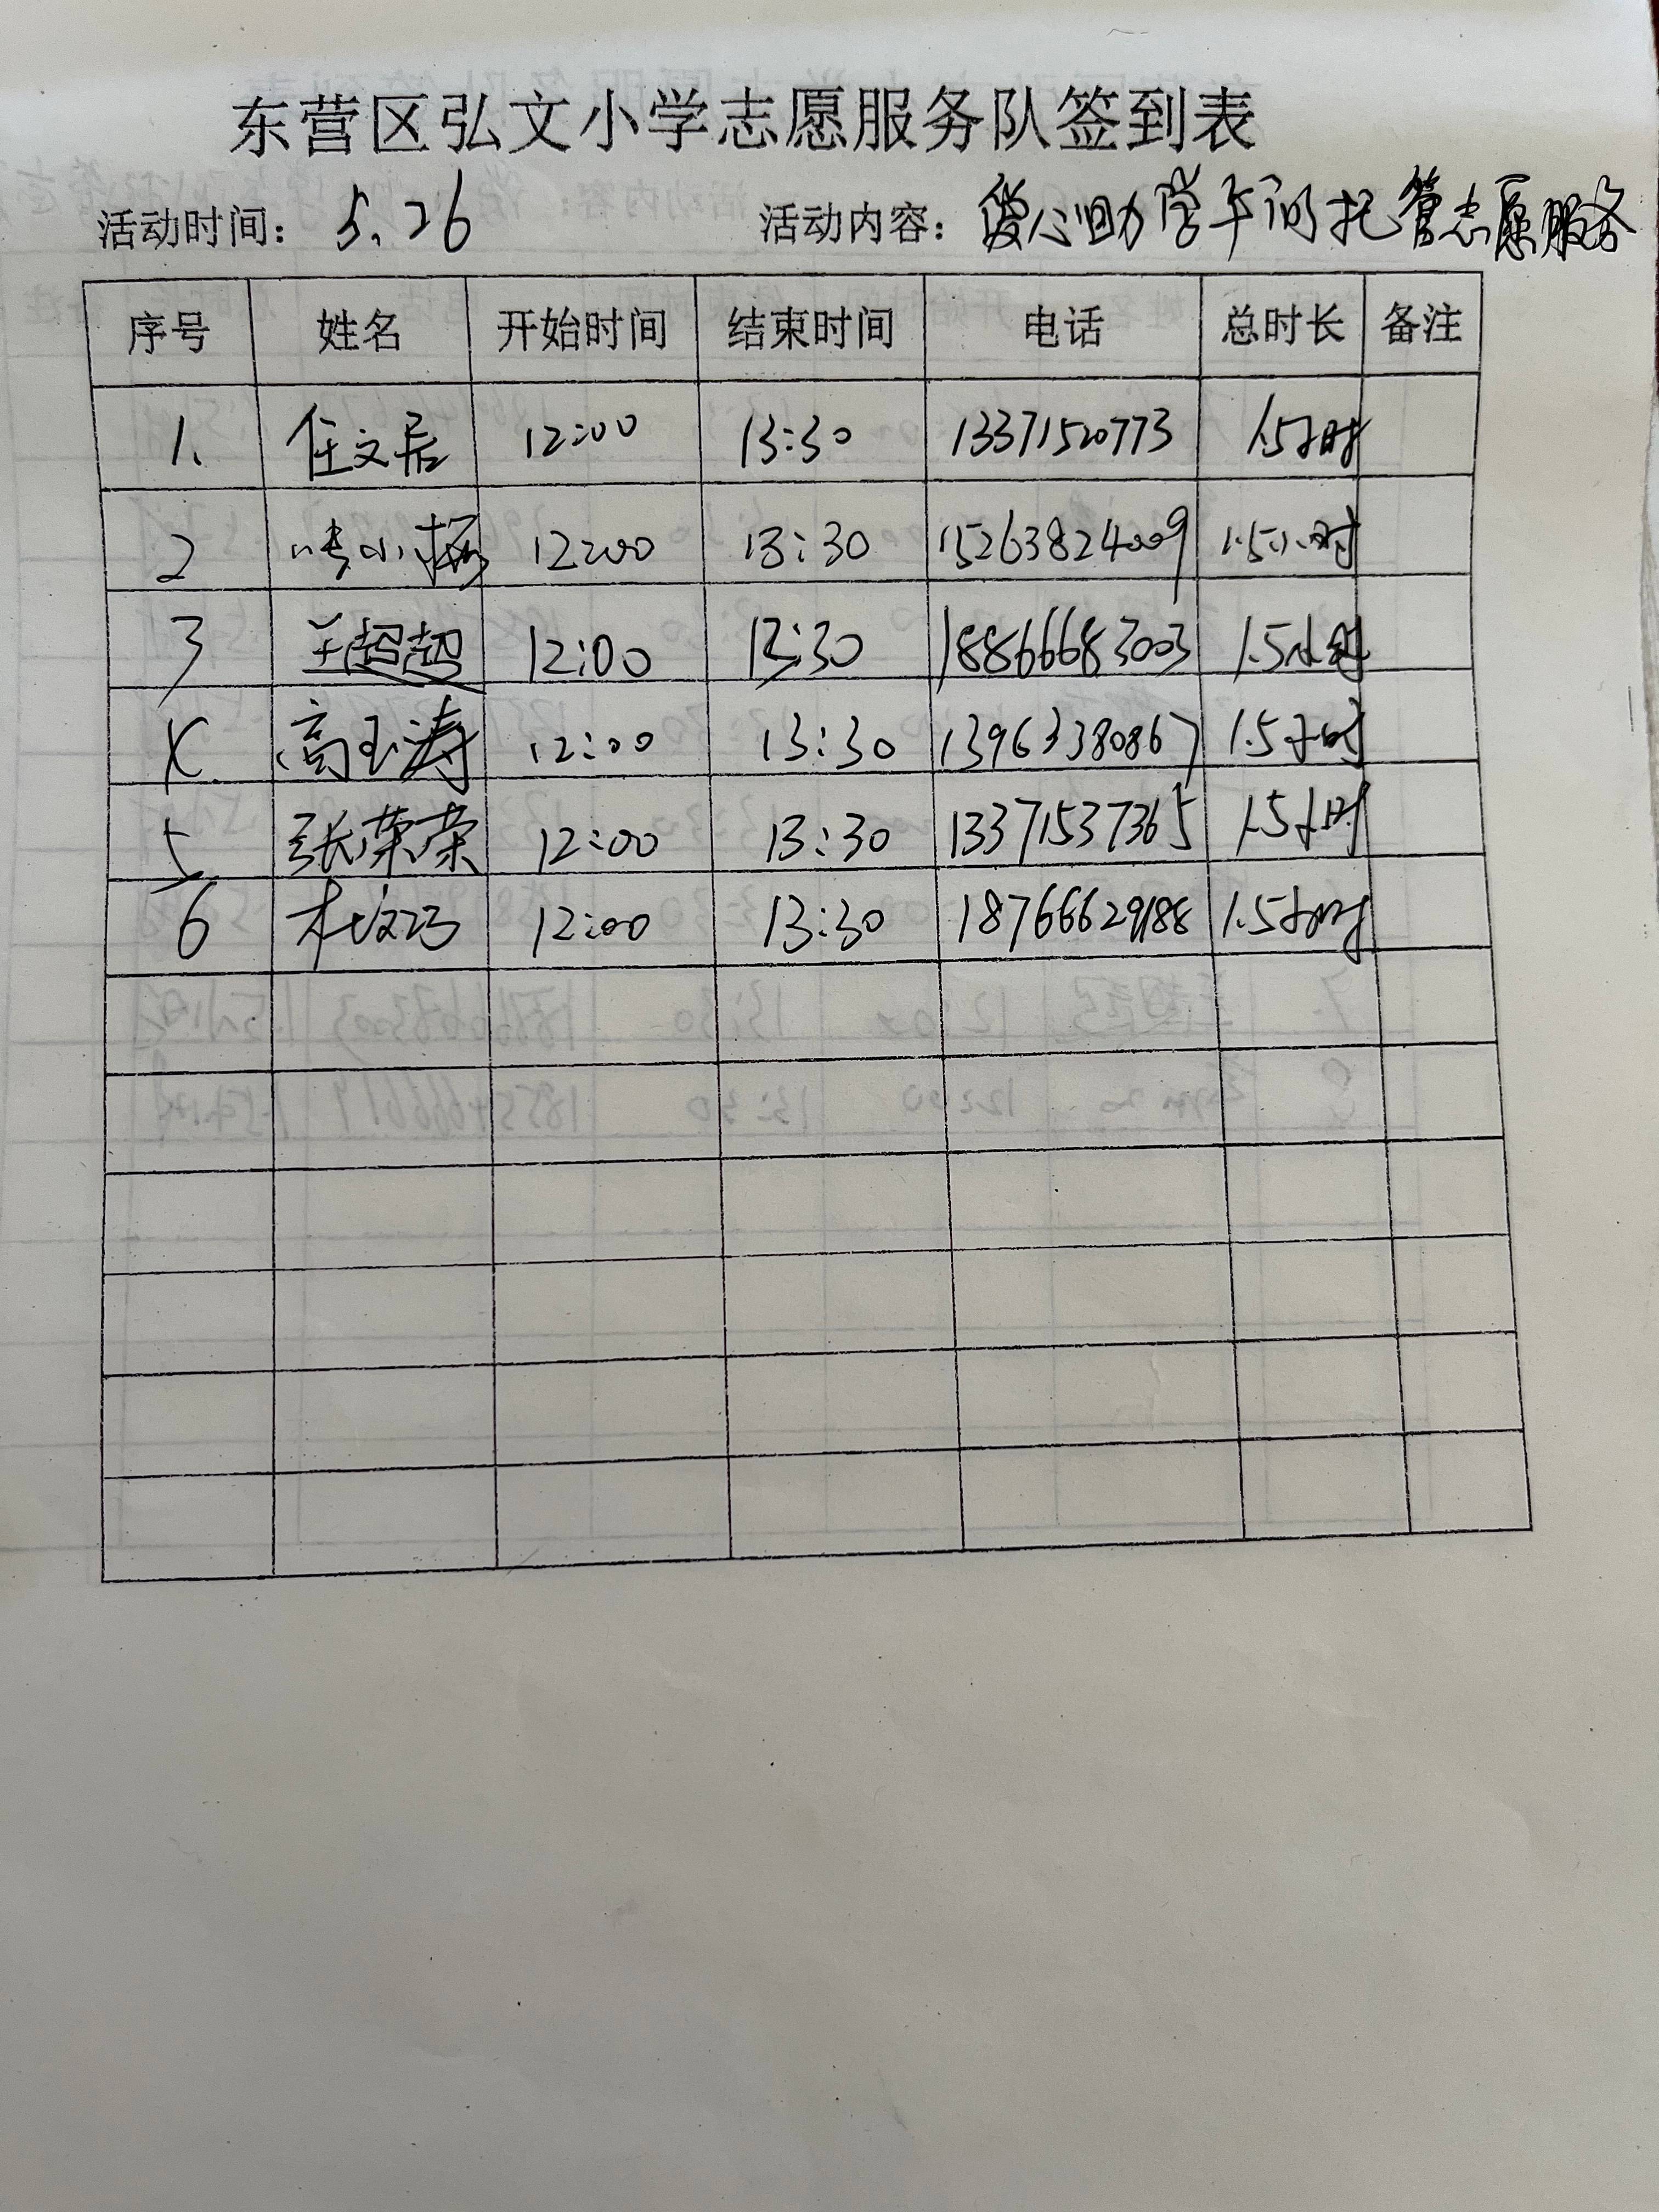 东营区弘文小学志愿服务队签到表
活动时间：5.26 活动内容：爱心助学午间托管志愿服务
序号 姓名 开始时间 结束时间 电话 总时长 备注
1. 任文居 12:00 13:30 13371520773 1.5小时
2 小 12:00 13:30 15263824009 1.5小时
3 王超超 12:00 13:30 18866683003 1.5小时
4 高玉涛 12:00 13:30 13963380867 1.5小时
5 张荣荣 12:00 13:30 13371537365 1.5小时
6 12:00 13:30 18766629188 1.5小时